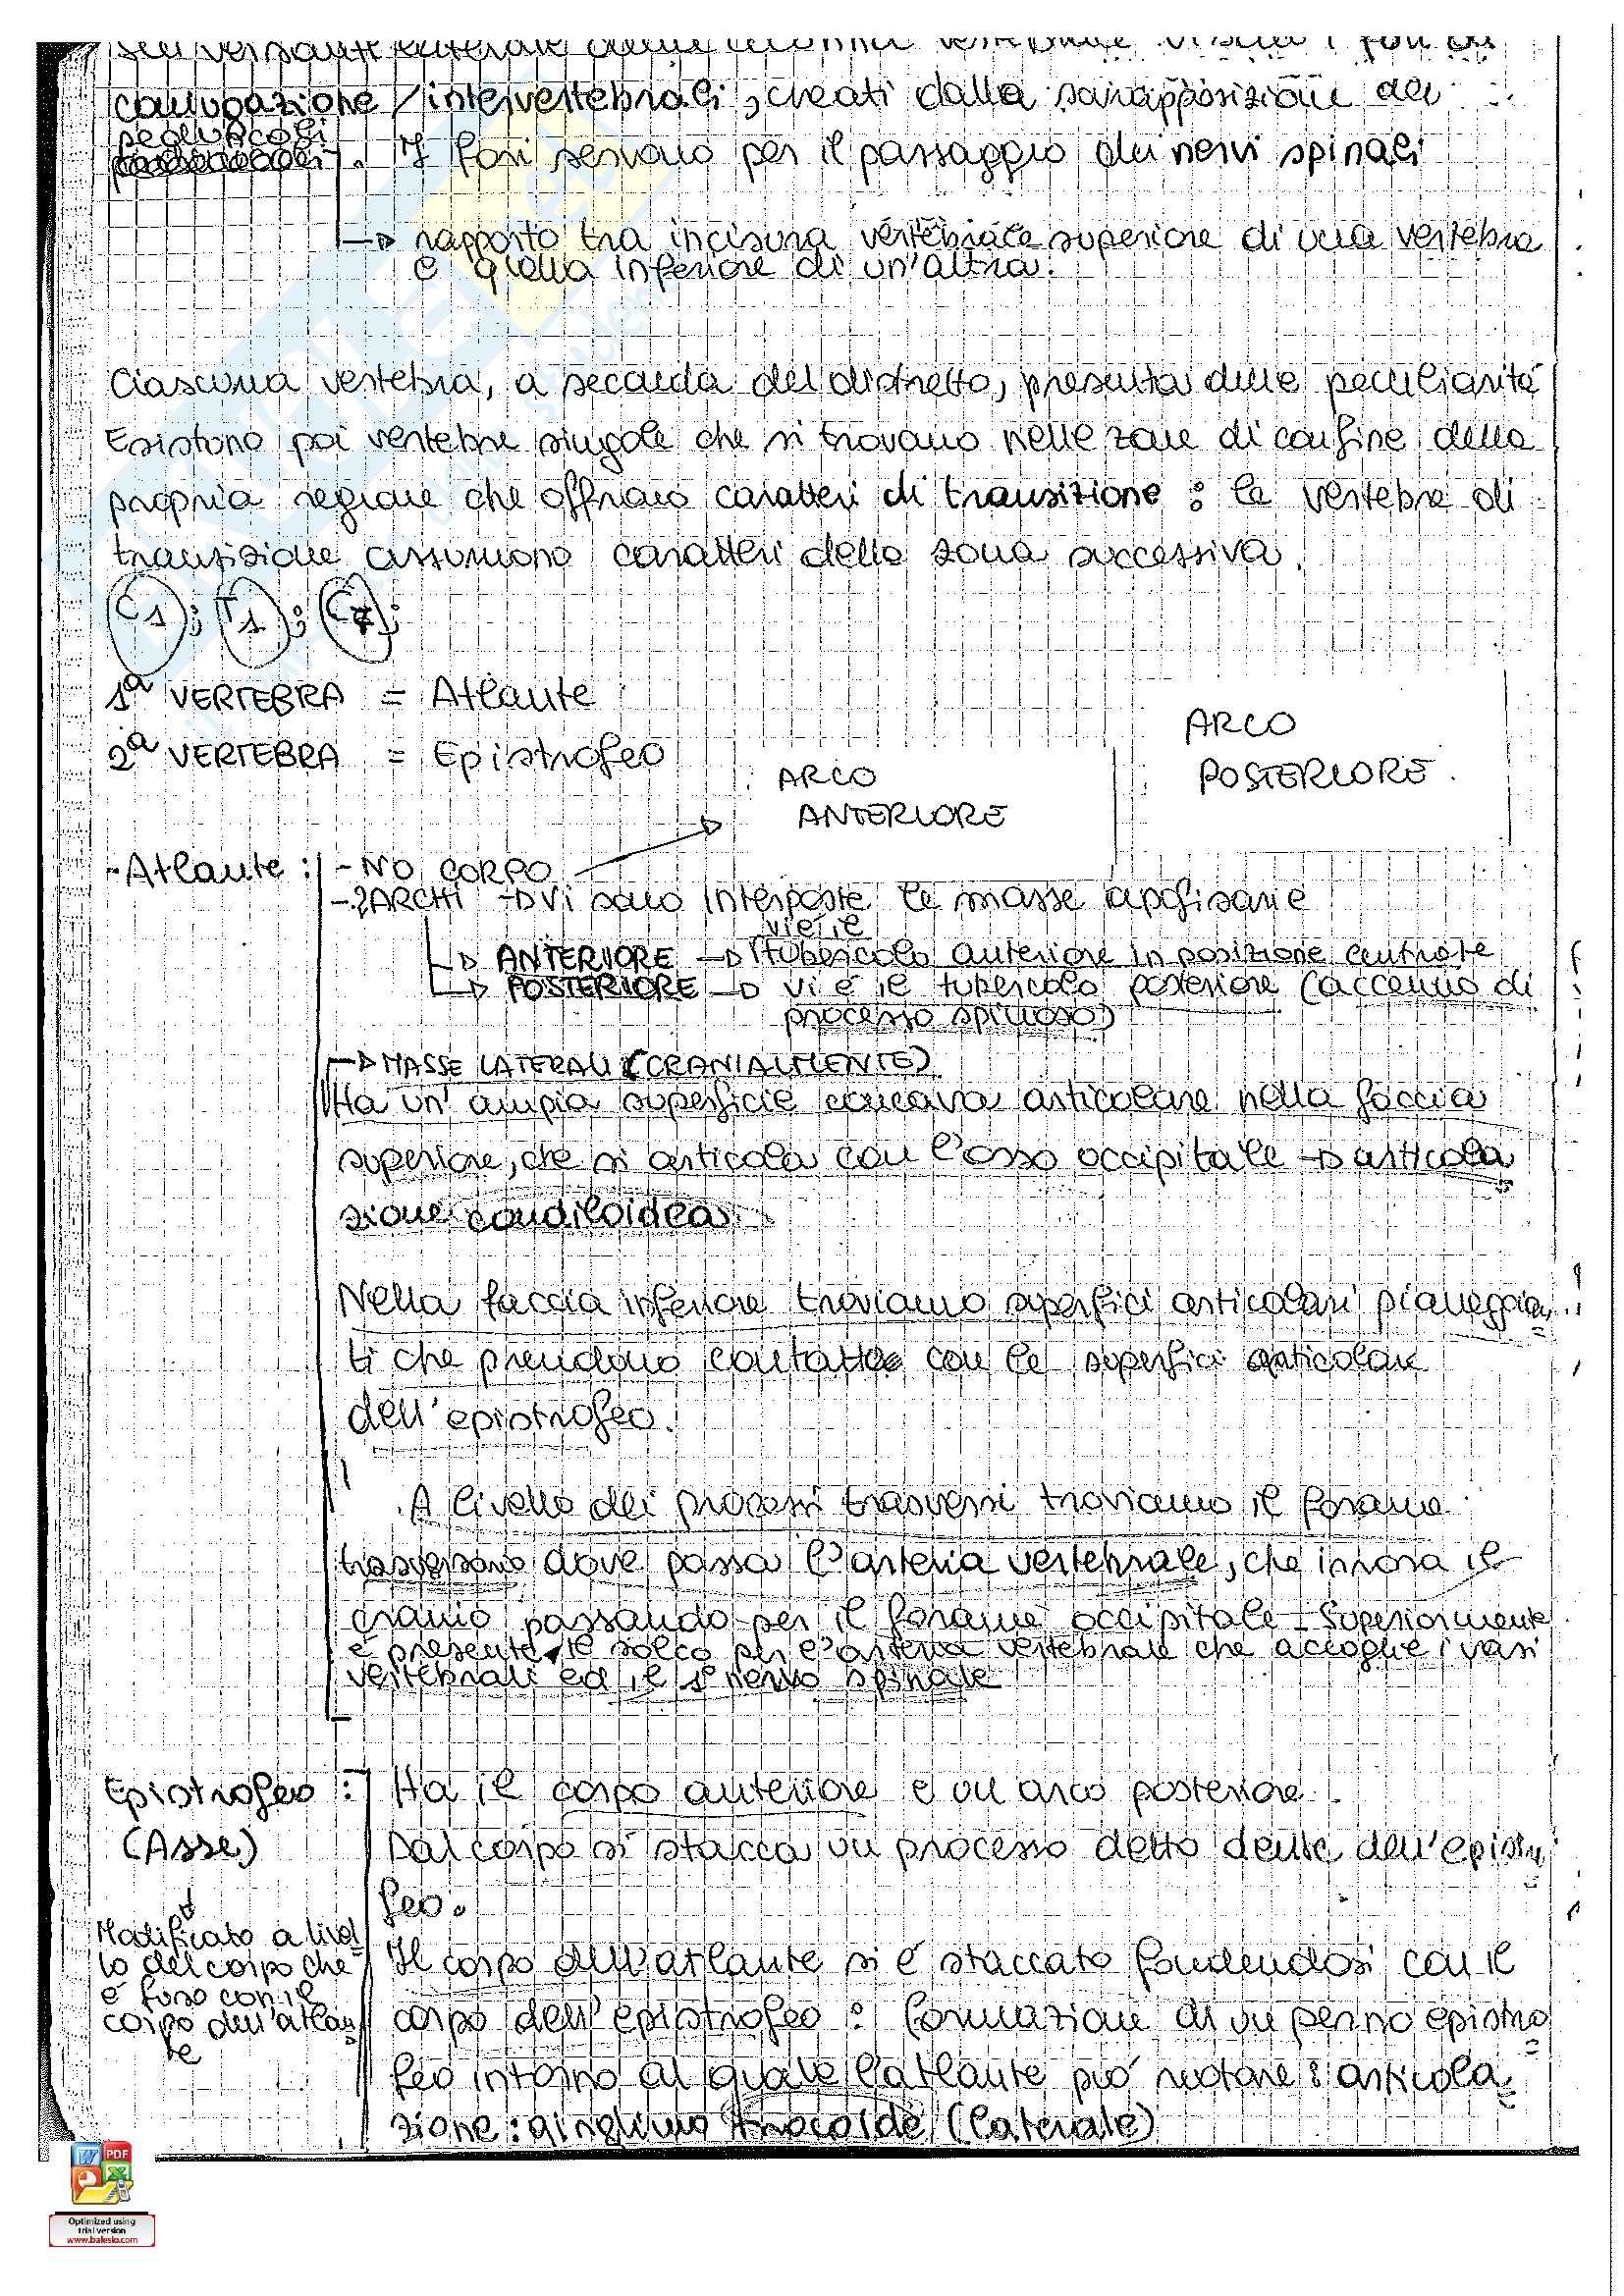 sul versante laterale della colonna vertebrale vi sono i fori di
coniugazione / intervertebrali, creati dalla sovrapposizione dei
peduncoli
. I fori servono per il passaggio dei nervi spinali
→ rapporto tra incisura vertebrale superiore di una vertebra
e quella inferiore di un'altra.
Ciascuna vertebra, a seconda del distretto, presenta delle peculiarità
Esistono poi vertebre singole che si trovano nelle zone di confine della
propria regione che offrono caratteri di transizione : le vertebre di
transizione assumono caratteri della zona successiva.
C1 ; T1 ; C7 ;
1ª VERTEBRA = Atlante
2ª VERTEBRA = Epistrofeo
ARCO
ANTERIORE
ARCO
POSTERIORE.
- Atlante : - NO CORPO
- 2 ARCHI → Vi sono interposte le masse apofisarie
vi è il
→ ANTERIORE → (tubercolo anteriore in posizione centrale
→ POSTERIORE → vi è il tubercolo posteriore (accenno di
processo spinoso)
→ MASSE LATERALI (CRANIALMENTE)
Ha un'ampia superficie concava articolare nella faccia
superiore, che si articola con l'osso occipitale → articola
zione condiloidea.
Nella faccia inferiore troviamo superfici articolari pianeggian
ti che prendono contatto con le superfici articolari
dell'epistrofeo.
. A livello dei processi trasversi troviamo il forame
trasversario dove passa l'arteria vertebrale, che irrora il
cranio passando per il forame occipitale - Superiormente
è presente il solco per l'arteria vertebrale che accoglie i vasi
vertebrali ed il 1° nervo spinale
Epistrofeo : Ha il corpo anteriore e un arco posteriore.
(Asse) Dal corpo si stacca un processo detto dente dell'epistro
feo.
Modificato a livel
lo del corpo che
è fuso con il
corpo dell'atlan
te
Il corpo dell'atlante si è staccato fondendosi con il
corpo dell'epistrofeo : formazione di un perno epistro
feo intorno al quale l'atlante può ruotare : articola
zione : ginglimo trocoide (laterale)
Optimized using
trial version
www.balesio.com